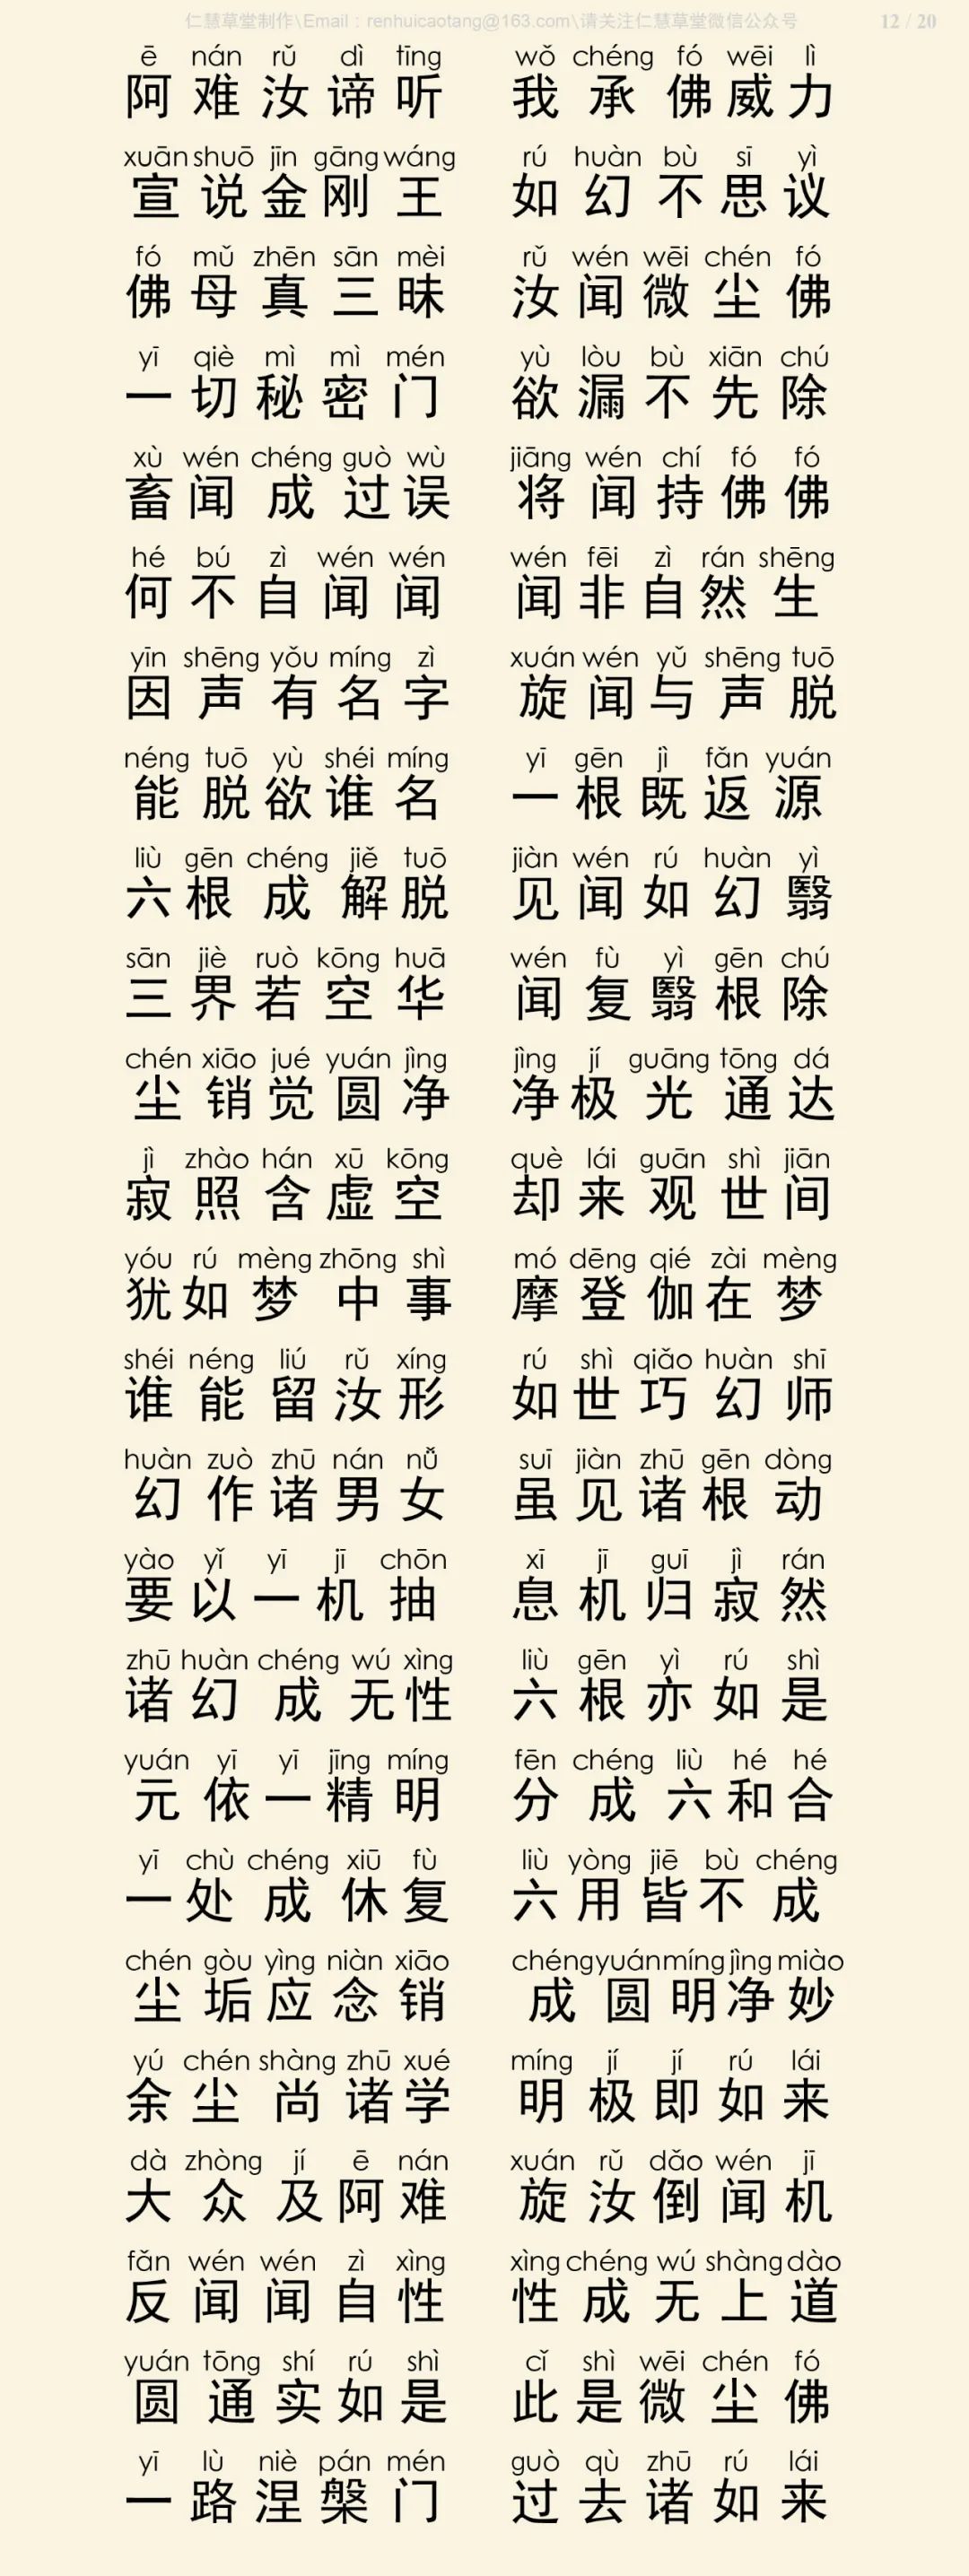 仁慧草堂制作\Email：renhuicaotang@163.com\请关注仁慧草堂微信公众号 12 / 20
ē nán rǔ dì tīng wǒ chéng fó wēi lì
阿难汝谛听 我承佛威力
xuān shuō jīn gāng wáng rú huàn bù sī yì
宣说金刚王 如幻不思议
fó mǔ zhēn sān mèi rǔ wén wēi chén fó
佛母真三昧 汝闻微尘佛
yī qiè mì mì mén yù lòu bù xiān chú
一切秘密门 欲漏不先除
xù wén chéng guò wù jiāng wén chí fó fó
畜闻成过误 将闻持佛佛
hé bú zì wén wén wén fēi zì rán shēng
何不自闻闻 闻非自然生
yīn shēng yǒu míng zì xuán wén yǔ shēng tuō
因声有名字 旋闻与声脱
néng tuō yù shéi míng yī gēn jì fǎn yuán
能脱欲谁名 一根既返源
liù gēn chéng jiě tuō jiàn wén rú huàn yì
六根成解脱 见闻如幻翳
sān jiè ruò kōng huā wén fù yì gēn chú
三界若空华 闻复翳根除
chén xiāo jué yuán jìng jìng jí guāng tōng dá
尘销觉圆净 净极光通达
jì zhào hán xū kōng què lái guān shì jiān
寂照含虚空 却来观世间
yóu rú mèng zhōng shì mó dēng qié zài mèng
犹如梦中事 摩登伽在梦
shéi néng liú rǔ xíng rú shì qiǎo huàn shī
谁能留汝形 如世巧幻师
huàn zuò zhū nán nǚ suī jiàn zhū gēn dòng
幻作诸男女 虽见诸根动
yào yǐ yī jī chōn xī jī guī jì rán
要以一机抽 息机归寂然
zhū huàn chéng wú xìng liù gēn yì rú shì
诸幻成无性 六根亦如是
yuán yī yī jīng míng fēn chéng liù hé hé
元依一精明 分成六和合
yī chù chéng xiū fù liù yòng jiē bù chéng
一处成休复 六用皆不成
chén gòu yìng niàn xiāo chéng yuán míng jìng miào
尘垢应念销 成圆明净妙
yú chén shàng zhū xué míng jí jí rú lái
余尘尚诸学 明极即如来
dà zhòng jí ē nán xuán rǔ dǎo wén jī
大众及阿难 旋汝倒闻机
fǎn wén wén zì xìng xìng chéng wú shàng dào
反闻闻自性 性成无上道
yuán tōng shí rú shì cǐ shì wēi chén fó
圆通实如是 此是微尘佛
yī lù niè pán mén guò qù zhū rú lái
一路涅槃门 过去诸如来